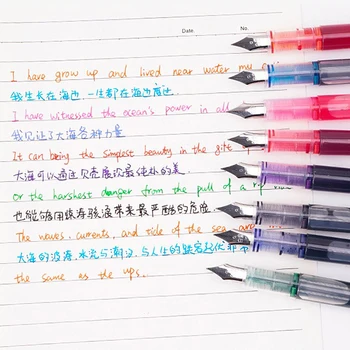 Date. No.
I have grow up and lived near water my
我生长在海边,一生都在海边度过
I have witnessed the ocean's power in all
我见证了大海各种力量
It can bring the simplest beauty in the gift
大海可以通过贝壳展次最纯朴的美.
Or the harshest danger from the pull of a rip
也能够用 来最严酷的危险
The waves, currents, and tide of the sea are
大海的波涛,水流与潮汐,与人生的跌宕起伏非
the same as the ups.